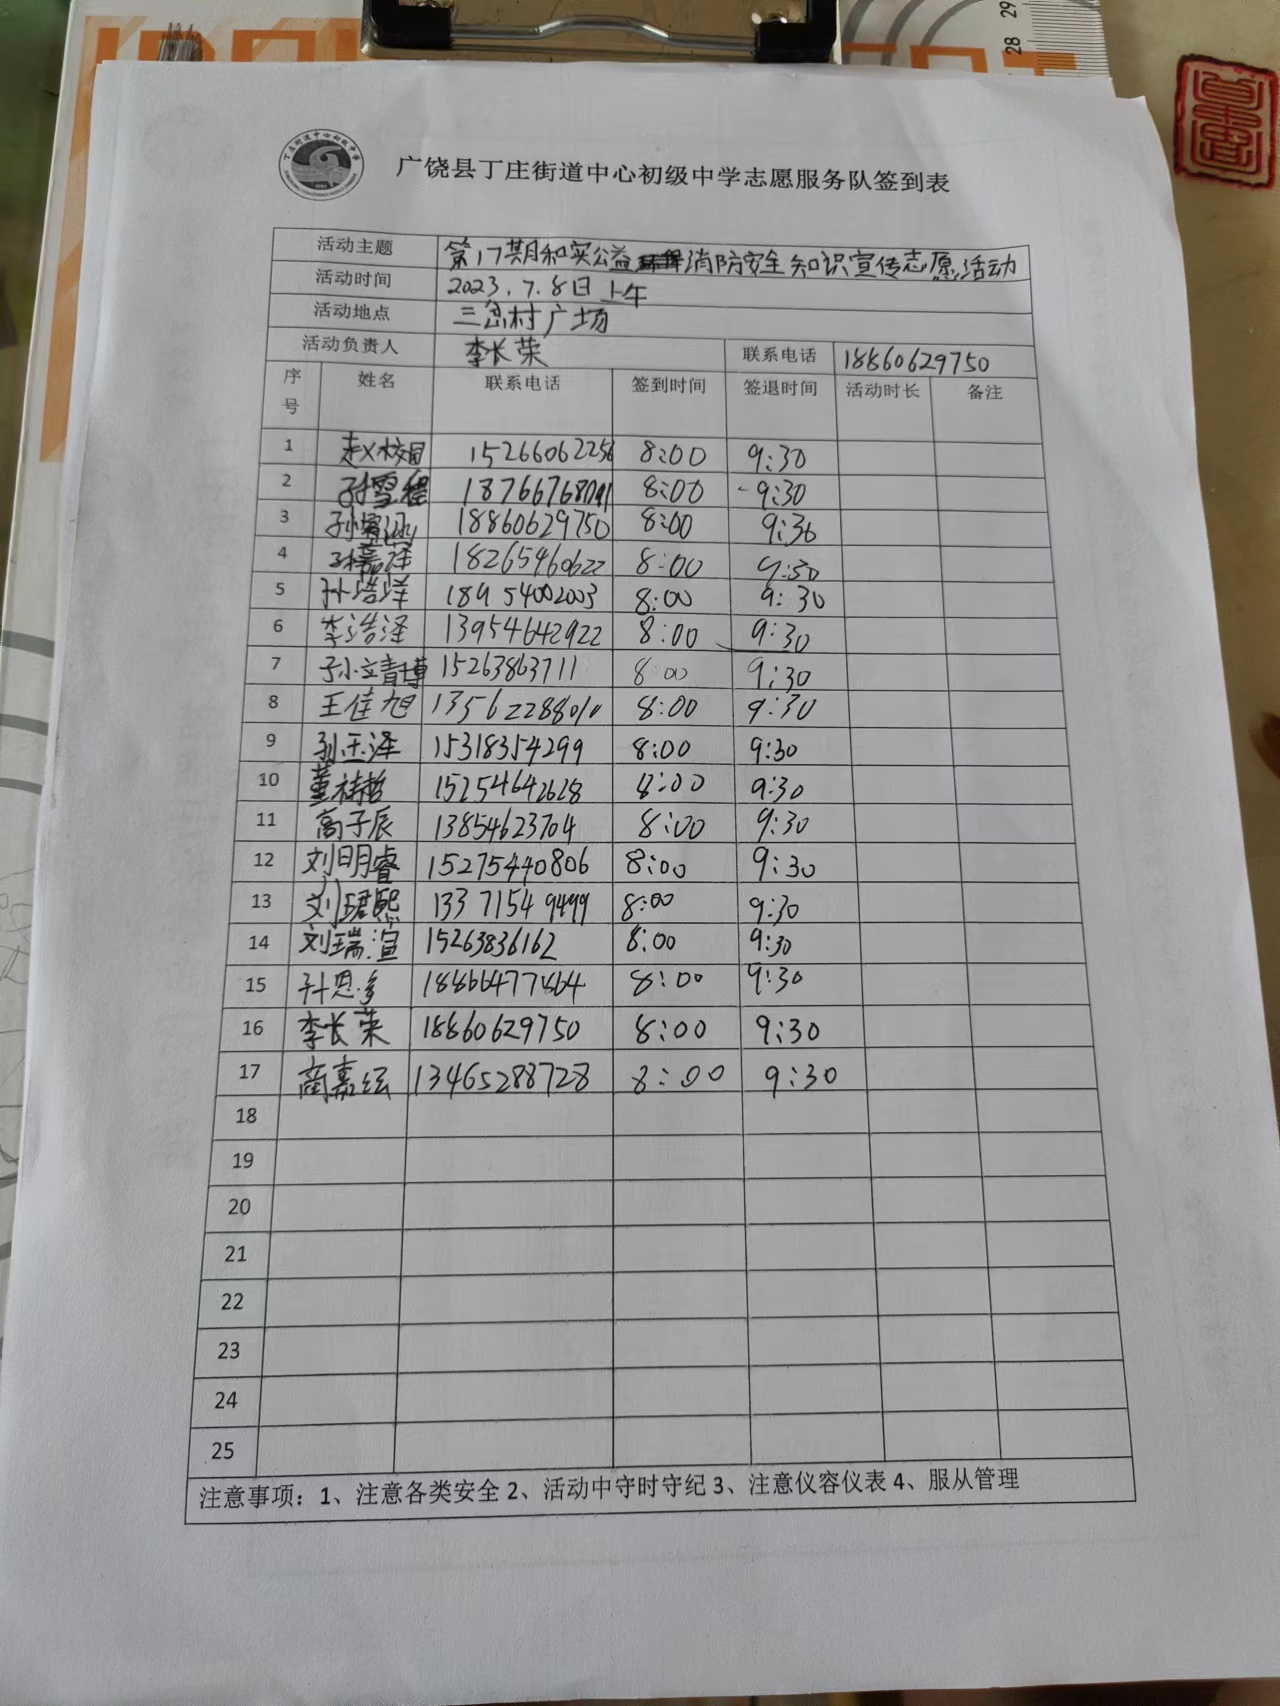 广饶县丁庄街道中心初级中学志愿服务队签到表
活动主题 第17期和实公益消防安全知识宣传志愿活动
活动时间 2023.7.8日上午
活动地点 三岔村广场
活动负责人 李长荣 联系电话 18860629750
序号 姓名 联系电话 签到时间 签退时间 活动时长 备注
1 赵校园 15266062256 8:00 9:30
2 孙雪程 8:00 9:30
3 18860629750 8:00 9:30
4 孙嘉泽 18265460622 8:00 9:30
5 孙浩洋 18954002003 8:00 9:30
6 李浩泽 13954642922 8:00 9:30
7 孙文博 15263863711 8:00 9:30
8 王佳旭 13562288010 8:00 9:30
9 孙玉泽 15318354299 8:00 9:30
10 董祐哲 15254642628 8:00 9:30
11 高子辰 13854623704 8:00 9:30
12 刘明睿 15275440806 8:00 9:30
13 刘珺熙 13371549499 8:00 9:30
14 刘瑞渲 15263836162 8:00 9:30
15 孙恩多 18866477864 8:00 9:30
16 李长荣 18860629750 8:00 9:30
17 商嘉纭 13465288728 8:00 9:30
18
19
20
21
22
23
24
25
注意事项：1、注意各类安全 2、活动中守时守纪 3、注意仪容仪表 4、服从管理
28 29